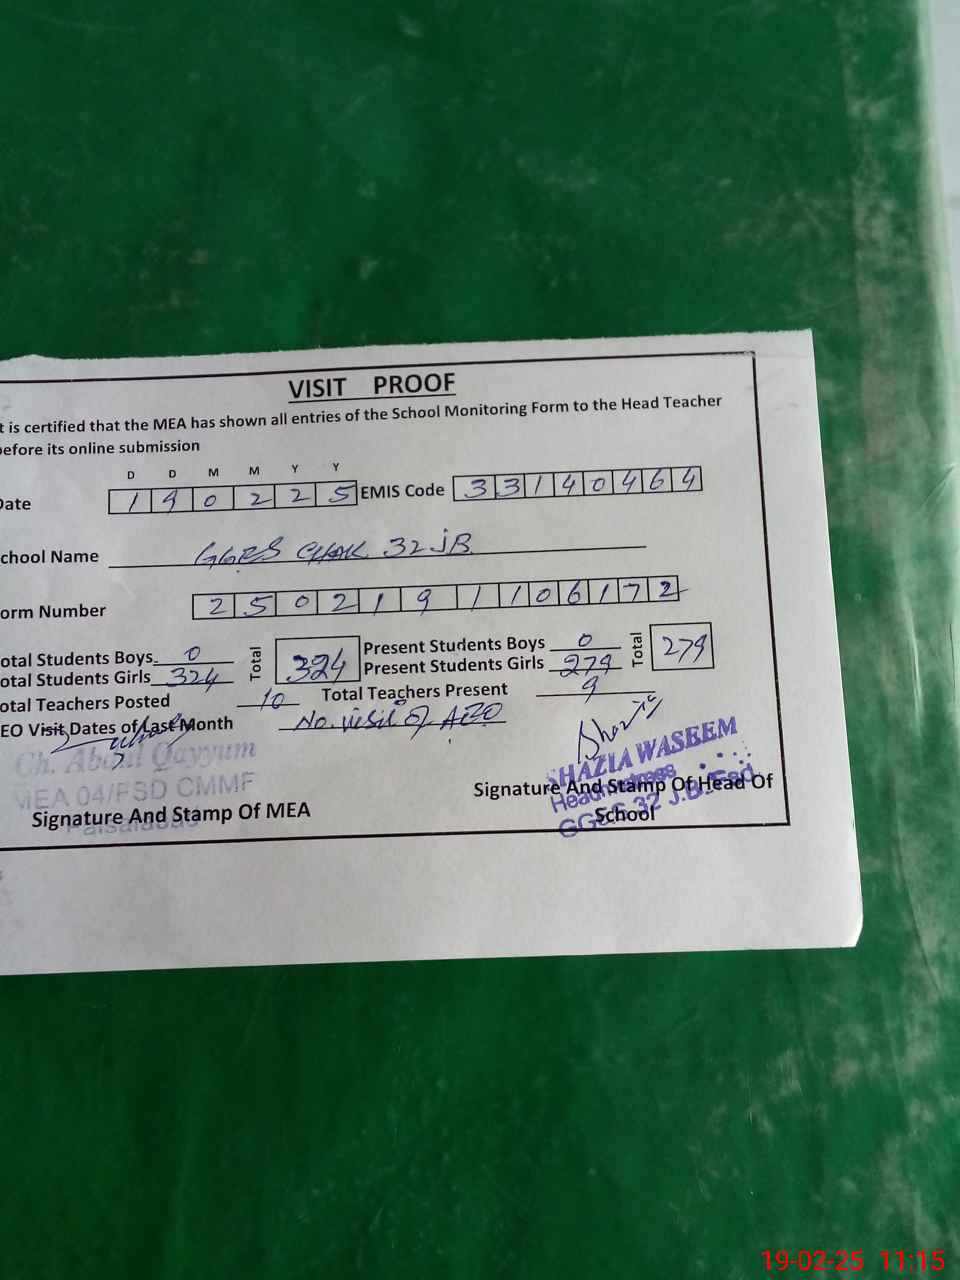 VISIT PROOF
t is certified that the MEA has shown all entries of the School Monitoring Form to the Head Teacher
before its online submission
D D M M Y Y
Date 190225 EMIS Code 33140464
chool Name GGES CHAK 32 JB
orm Number 2502191106172
otal Students Boys 0 Total 324 Present Students Boys 0 Total 279
otal Students Girls 324 Present Students Girls 279
otal Teachers Posted 10 Total Teachers Present 9
EO Visit Dates of Last Month No. visit of AEO
Ch. Abdul Qayyum
MEA 04/FSD CMMF
Faisalabad
Signature And Stamp Of MEA
SHAZIA WASEEM
Headmistress
GGES 32 J.B. Fsd
Signature And Stamp Of Head Of
School
19-02-25 11:15